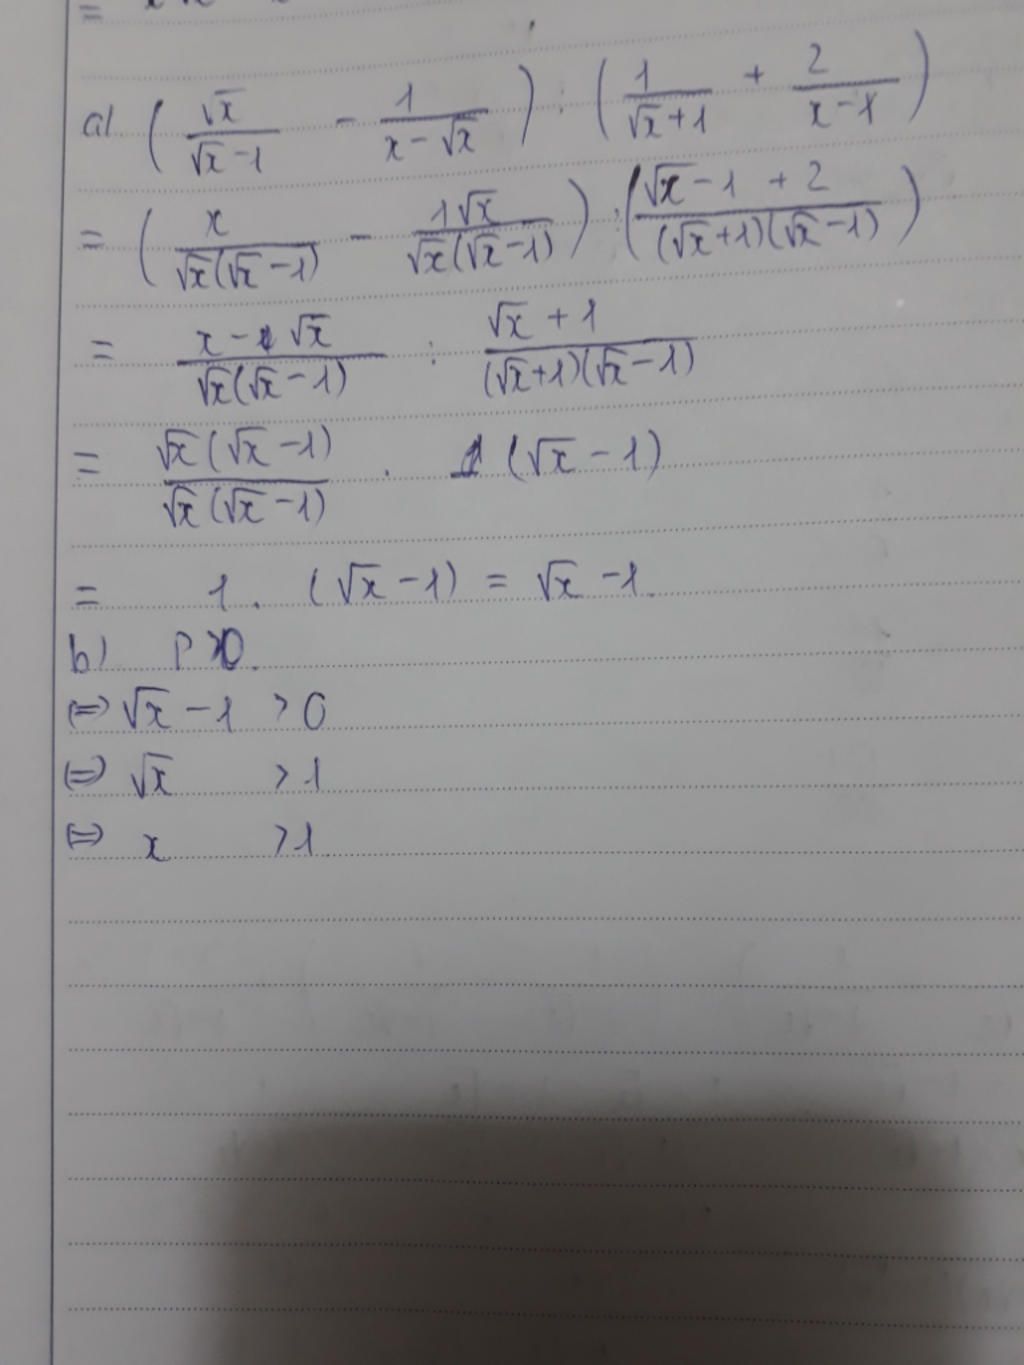 =
a) (√x/(√x-1) - 1/(x-√x)) : (1/(√x+1) + 2/(x-1))
= (x/(√x(√x-1)) - 1√x/(√x(√x-1))) : ((√x-1+2)/((√x+1)(√x-1)))
= (x-√x)/(√x(√x-1)) : (√x+1)/((√x+1)(√x-1))
= √x(√x-1)/(√x(√x-1)) . (√x-1)
= 1. (√x-1) = √x-1.
b) P>0.
(=) √x-1 >0
(=) √x >1
(=) x >1